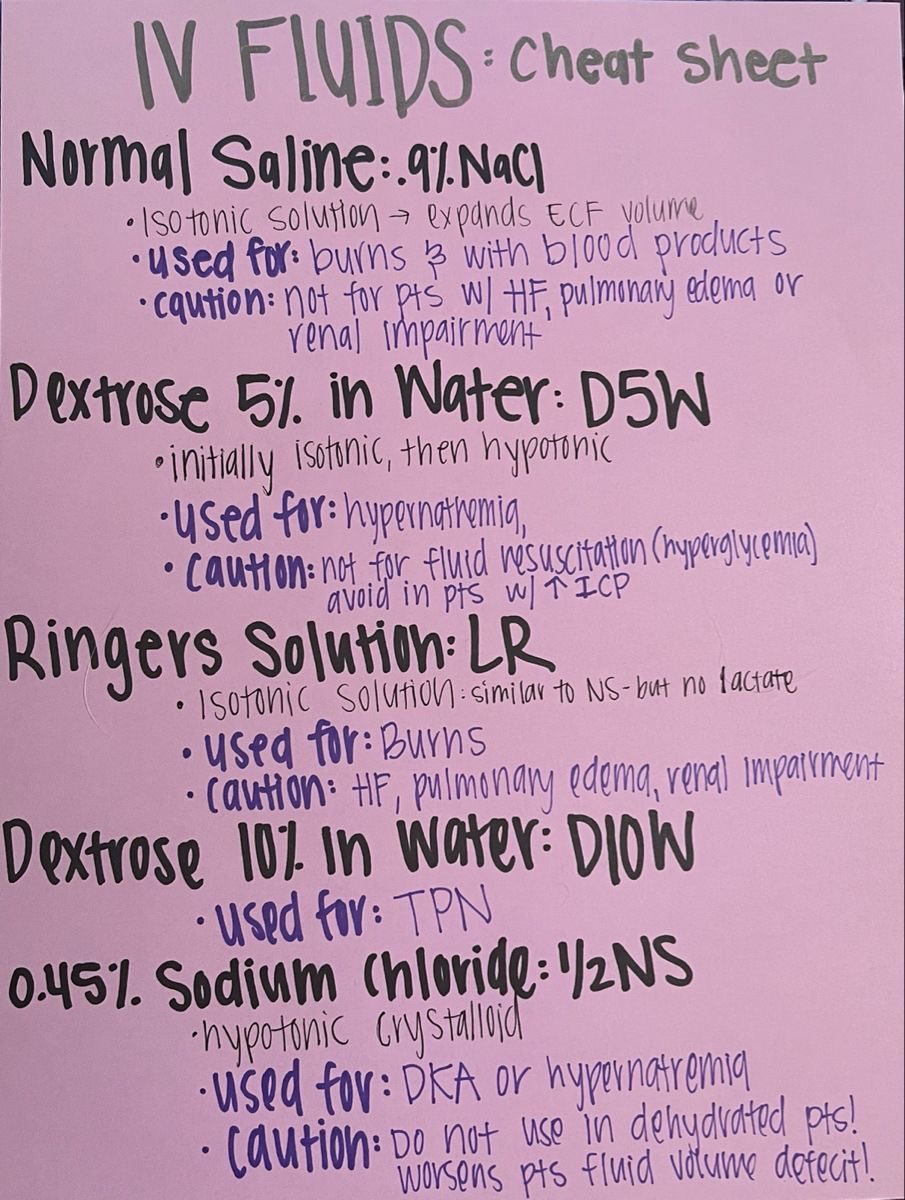 IV FLUIDS: Cheat Sheet
Normal Saline: .9% NaCl
• Isotonic solution → expands ECF volume
• used for: burns & with blood products
• caution: not for pts w/ HF, pulmonary edema or
renal impairment
Dextrose 5% in Water: D5W
• initially isotonic, then hypotonic
• used for: hypernathemia,
• caution: not for fluid resuscitation (hyperglycemia)
avoid in pts w/ ↑ ICP
Ringers Solution: LR
• Isotonic solution: similar to NS - but no lactate
• used for: Burns
• caution: HF, pulmonary edema, renal impairment
Dextrose 10% In Water: D10W
• used for: TPN
0.45% Sodium Chloride: 1/2NS
• hypotonic crystalloid
• used for: DKA or hypernatremia
• caution: Do not use in dehydrated pts!
worsens pts fluid volume defecit!